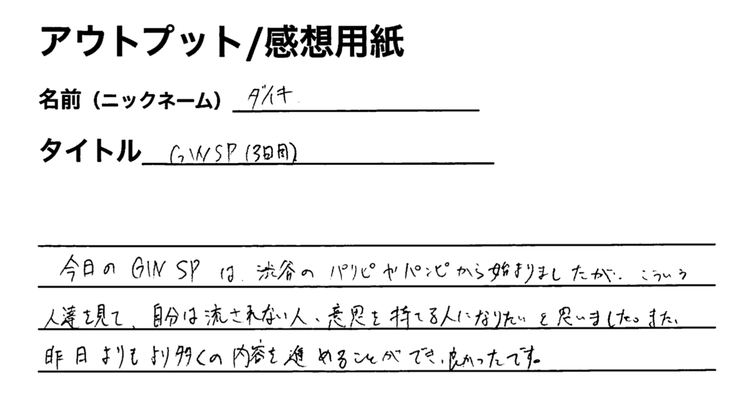 アウトプット/感想用紙
名前（ニックネーム） ダイキ
タイトル GIN SP (3日間)
今日の GIN SP は、渋谷の パリピやパンピから始まりましたが、こういう
人達を見て、自分は流されない人、意思を持てる人になりたいと思いました。また、
昨日よりもより多くの内容を進めることができ、良かったです。